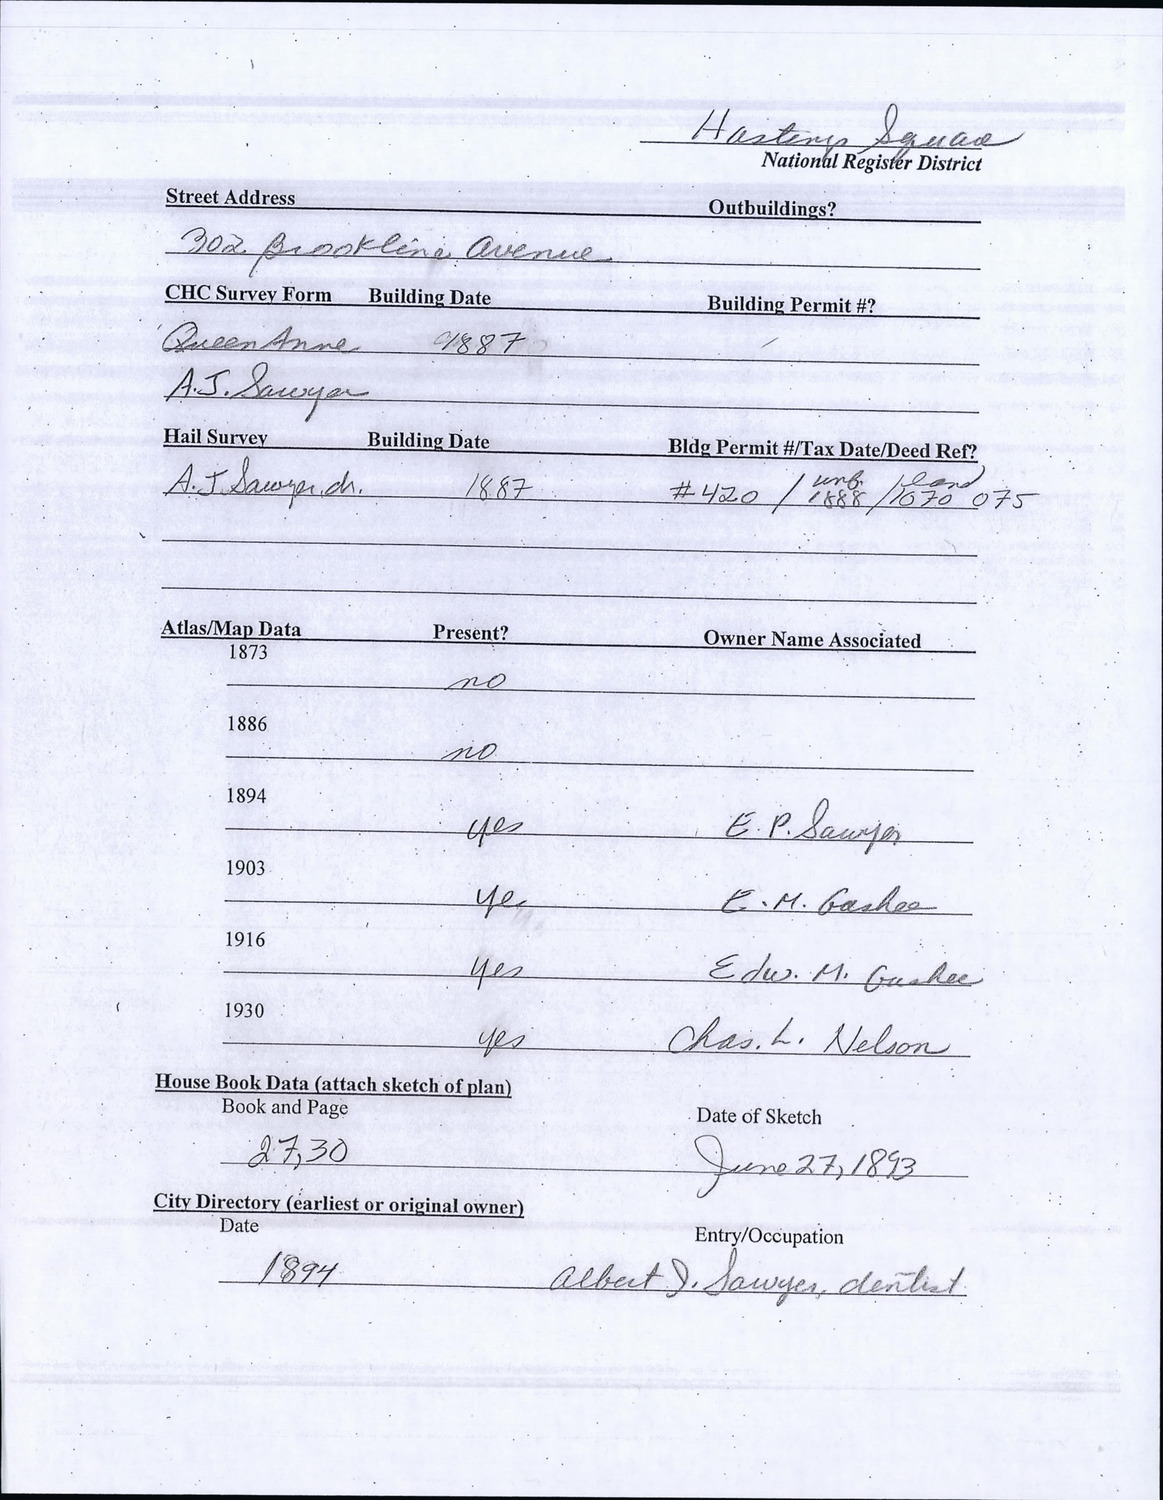 Hastings Square
National Register District
Street Address Outbuildings?
302 Brookline Avenue
CHC Survey Form Building Date Building Permit #?
Queen Anne 1887
A.J. Sawyer
Hail Survey Building Date Bldg Permit #/Tax Date/Deed Ref?
A.J. Sawyer, 1887 #420 / unf. 1888 / land 1670 075
Atlas/Map Data Present? Owner Name Associated
1873
no
1886
no
1894
yes E. P. Sawyer
1903
yes E. M. Gashee
1916
yes Edw. M. Gashee
1930
yes Chas. L. Nelson
House Book Data (attach sketch of plan)
Book and Page Date of Sketch
27,30 June 27, 1893
City Directory (earliest or original owner)
Date Entry/Occupation
1894 Albert J. Sawyer, dentist